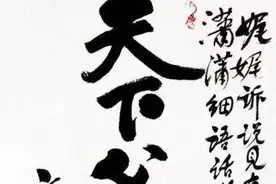 娓娓诉说见
潇潇细语话
天下